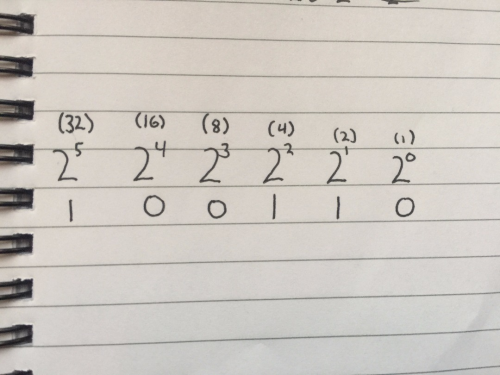 (32) (16) (8) (4) (2) (1)
2⁵ 2⁴ 2³ 2² 2¹ 2⁰
1 0 0 1 1 0